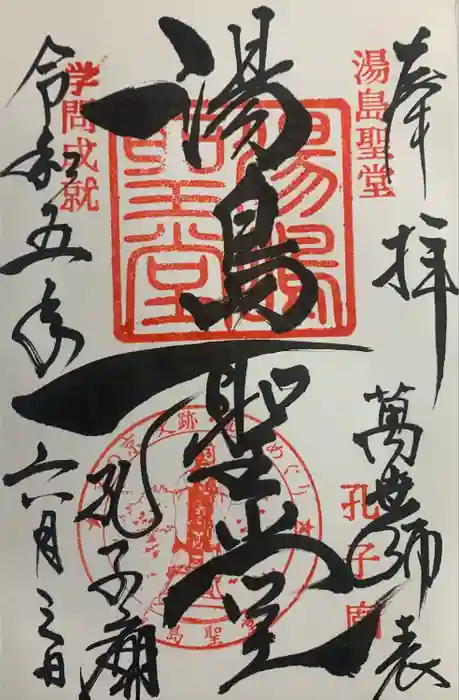 奉拝
湯島聖堂
萬世師表
孔子廟
湯島聖堂
湯島聖堂
孔子廟
学問成就
令和五年
六月三日